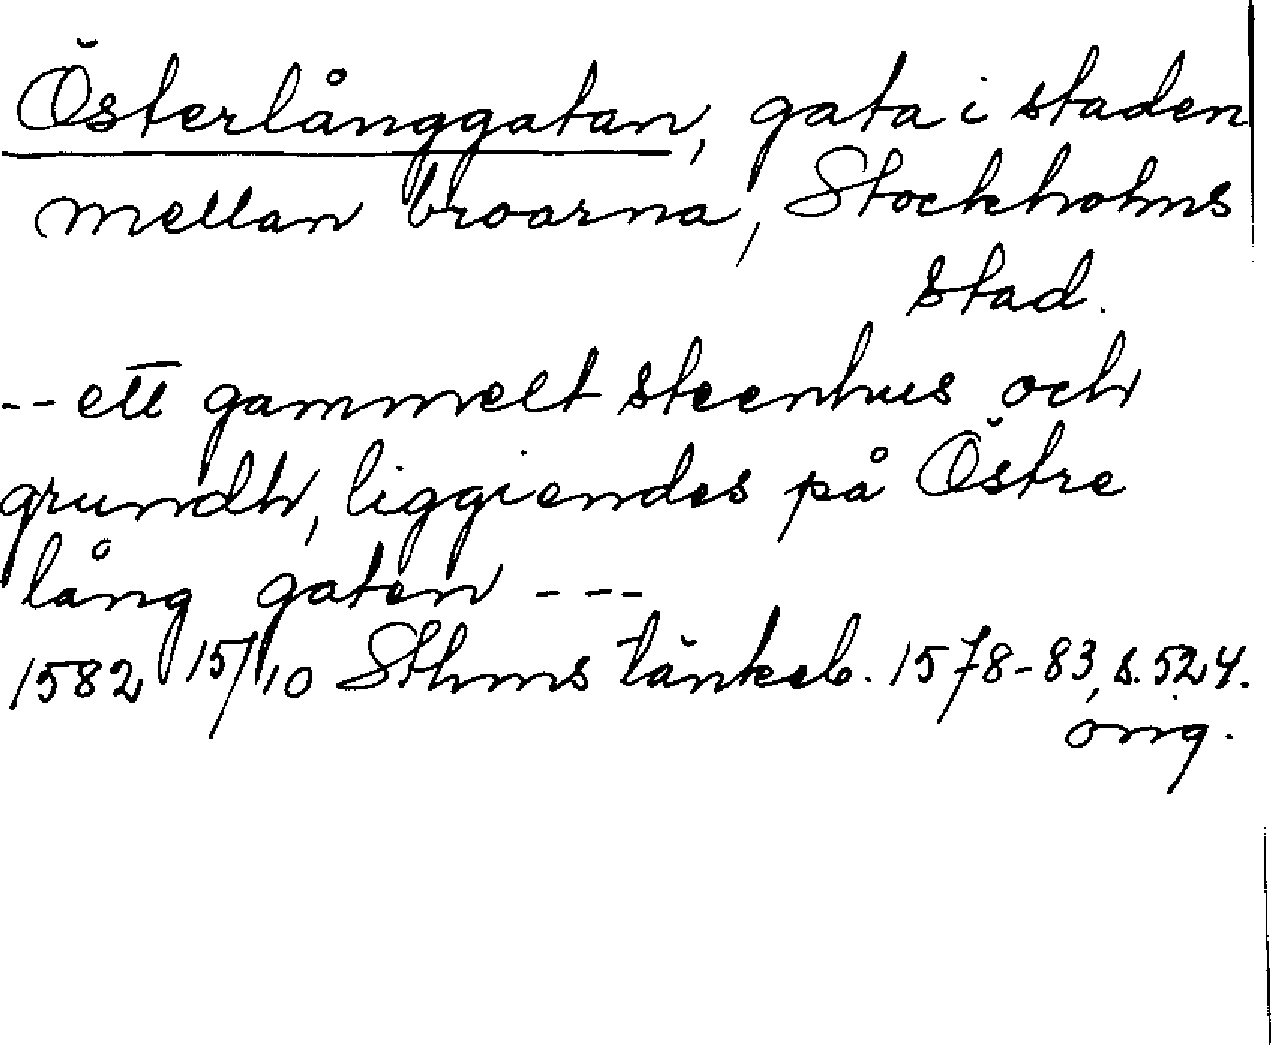 Österlånggatan, gata i staden
mellan broarna, Stockholms
stad.
-- ett gammelt steenhus och
grundh, liggiendes på Östre
lång gaten ---
1582 15/10 Sthms tänkeb. 1578-83, s. 524.
orig.